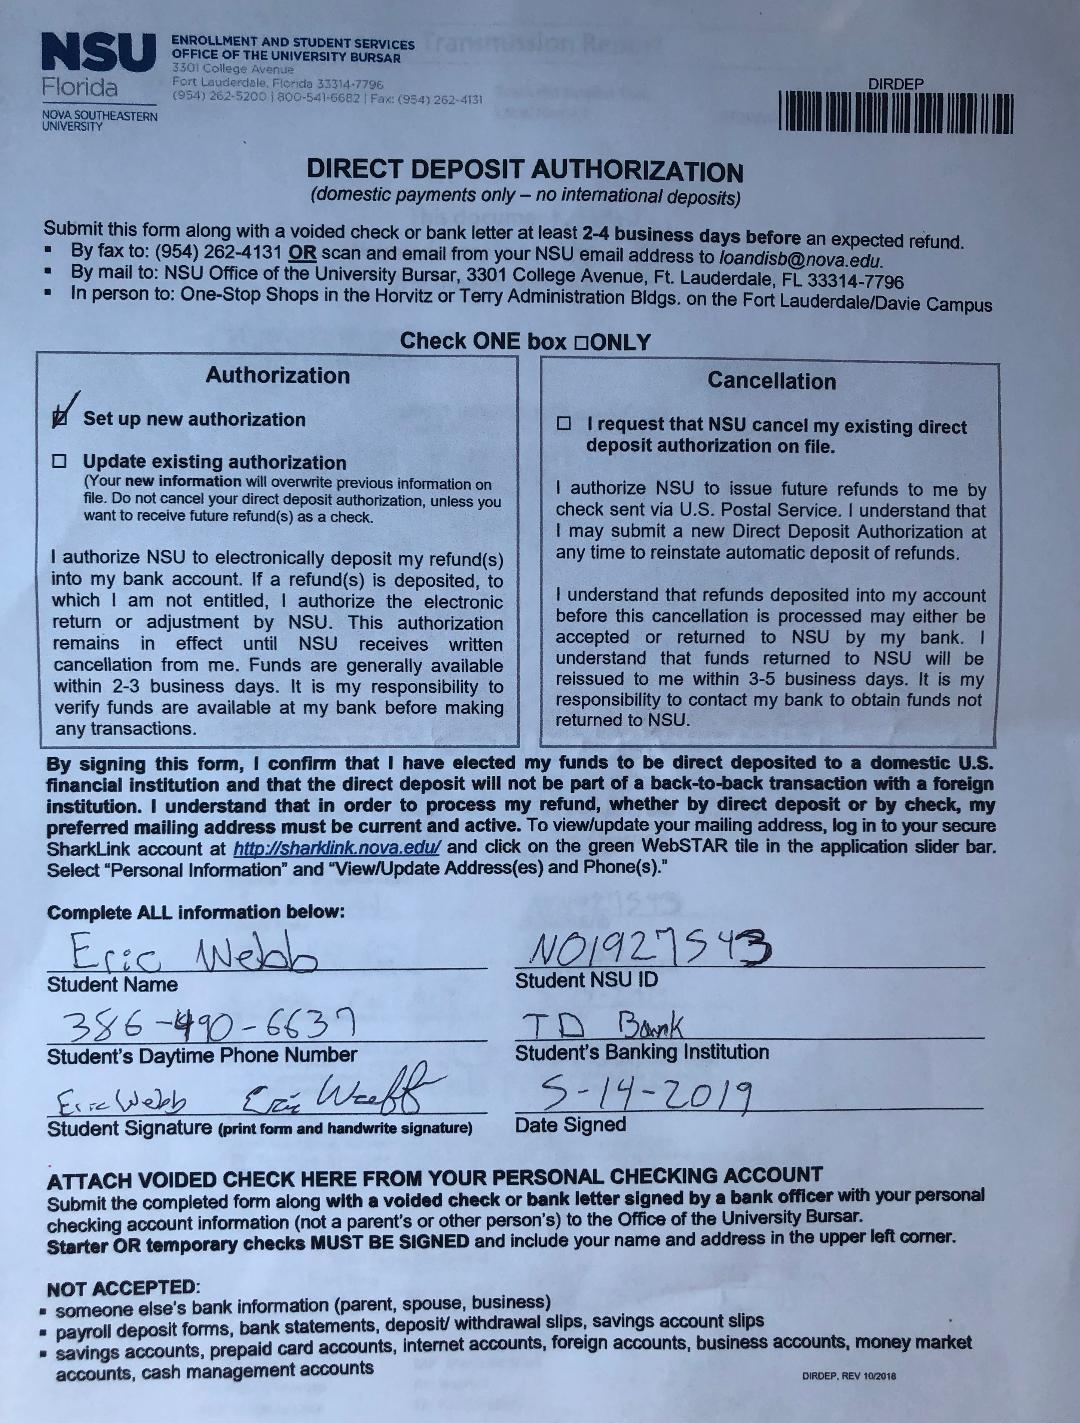 NSU
Florida
NOVA SOUTHEASTERN
UNIVERSITY
ENROLLMENT AND STUDENT SERVICES
OFFICE OF THE UNIVERSITY BURSAR
3301 College Avenue
Fort Lauderdale, Florida 33314-7796
(954) 262-5200 | 800-541-6682 | Fax: (954) 262-4131
DIRDEP
DIRECT DEPOSIT AUTHORIZATION
(domestic payments only – no international deposits)
Submit this form along with a voided check or bank letter at least 2-4 business days before an expected refund.
▪ By fax to: (954) 262-4131 OR scan and email from your NSU email address to loandisb@nova.edu.
▪ By mail to: NSU Office of the University Bursar, 3301 College Avenue, Ft. Lauderdale, FL 33314-7796
▪ In person to: One-Stop Shops in the Horvitz or Terry Administration Bldgs. on the Fort Lauderdale/Davie Campus
Check ONE box □ONLY
Authorization
Set up new authorization
□ Update existing authorization
(Your new information will overwrite previous information on
file. Do not cancel your direct deposit authorization, unless you
want to receive future refund(s) as a check.
I authorize NSU to electronically deposit my refund(s)
into my bank account. If a refund(s) is deposited, to
which I am not entitled, I authorize the electronic
return or adjustment by NSU. This authorization
remains in effect until NSU receives written
cancellation from me. Funds are generally available
within 2-3 business days. It is my responsibility to
verify funds are available at my bank before making
any transactions.
Cancellation
□ I request that NSU cancel my existing direct
deposit authorization on file.
I authorize NSU to issue future refunds to me by
check sent via U.S. Postal Service. I understand that
I may submit a new Direct Deposit Authorization at
any time to reinstate automatic deposit of refunds.
I understand that refunds deposited into my account
before this cancellation is processed may either be
accepted or returned to NSU by my bank. I
understand that funds returned to NSU will be
reissued to me within 3-5 business days. It is my
responsibility to contact my bank to obtain funds not
returned to NSU.
By signing this form, I confirm that I have elected my funds to be direct deposited to a domestic U.S.
financial institution and that the direct deposit will not be part of a back-to-back transaction with a foreign
institution. I understand that in order to process my refund, whether by direct deposit or by check, my
preferred mailing address must be current and active. To view/update your mailing address, log in to your secure
SharkLink account at http://sharklink.nova.edu/ and click on the green WebSTAR tile in the application slider bar.
Select "Personal Information" and "View/Update Address(es) and Phone(s)."
Complete ALL information below:
Eric Webb NO1927543
Student Name Student NSU ID
386-490-6637 TD Bank
Student's Daytime Phone Number Student's Banking Institution
Eric Webb Eric Webb 5-14-2019
Student Signature (print form and handwrite signature) Date Signed
ATTACH VOIDED CHECK HERE FROM YOUR PERSONAL CHECKING ACCOUNT
Submit the completed form along with a voided check or bank letter signed by a bank officer with your personal
checking account information (not a parent's or other person's) to the Office of the University Bursar.
Starter OR temporary checks MUST BE SIGNED and include your name and address in the upper left corner.
NOT ACCEPTED:
▪ someone else's bank information (parent, spouse, business)
▪ payroll deposit forms, bank statements, deposit/ withdrawal slips, savings account slips
▪ savings accounts, prepaid card accounts, internet accounts, foreign accounts, business accounts, money market
accounts, cash management accounts
DIRDEP, REV 10/2018